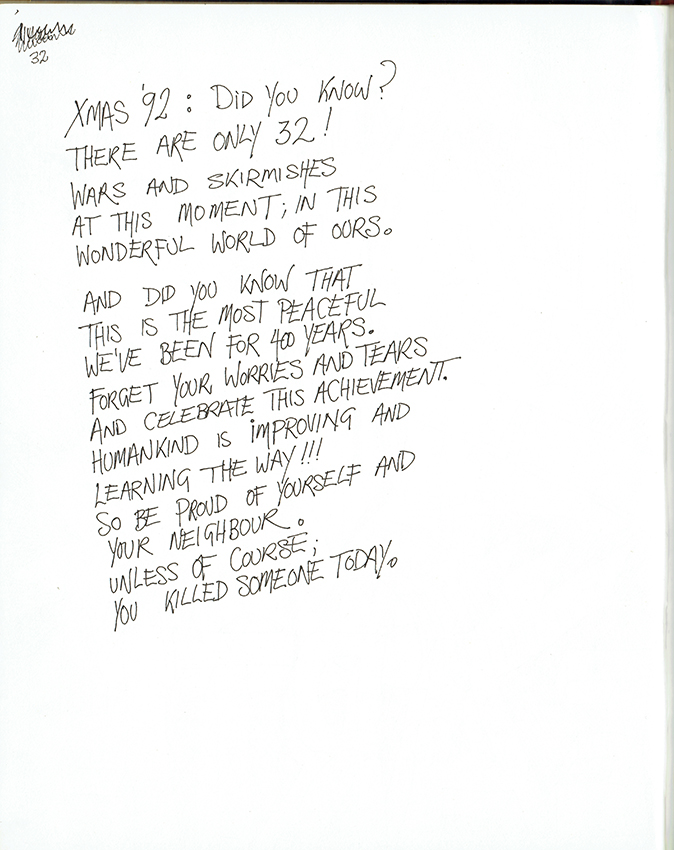 32
XMAS '92 : DID YOU KNOW?
THERE ARE ONLY 32!
WARS AND SKIRMISHES
AT THIS MOMENT; IN THIS
WONDERFUL WORLD OF OURS.
AND DID YOU KNOW THAT
THIS IS THE MOST PEACEFUL
WE'VE BEEN FOR 400 YEARS.
FORGET YOUR WORRIES AND TEARS
AND CELEBRATE THIS ACHIEVEMENT.
HUMANKIND IS IMPROVING AND
LEARNING THE WAY!!!
SO BE PROUD OF YOURSELF AND
YOUR NEIGHBOUR.
UNLESS OF COURSE;
YOU KILLED SOMEONE TODAY.